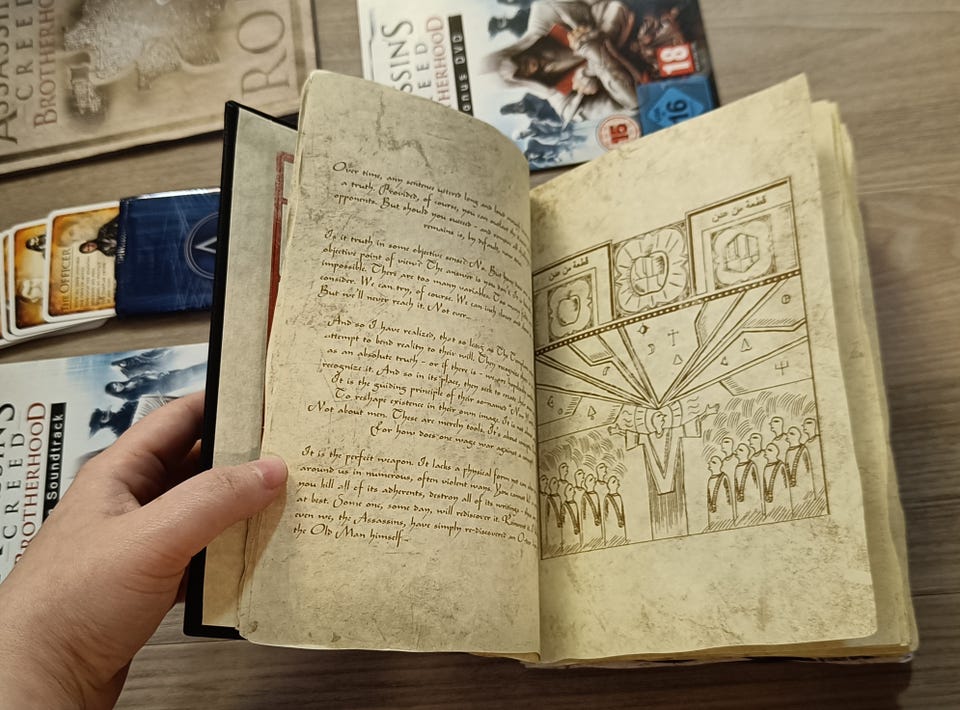 CREED
BROTHERHOOD
BRO
CREED
Bonus DVD
18
16
15
THE OFFICER
CREED
BROTHERHOOD
Soundtrack
Over time, any sentence uttered long and loud
a truth. Provided, of course, you can outlast the
opponents. But should you succeed - and remove all
remains is, by default,
Is it truth in some objective sense? No. But how
objective point of view? The answer is you don't. It
impossible. There are too many variables. Too
consider. We can try, of course. We can inch closer
But we'll never reach it. Not ever...
And so I have realized, that so long as The Templars
attempt to bend reality to their will. They recognize
as an absolute truth - or if there is - we are hopelessly
recognize it. And so in its place, they seek to create
It is the guiding principle of their so-named New
To reshape existence in their own image. It is
Not about men. These are merely tools. It's about
For how does one wage war against a
It is the perfect weapon. It lacks a physical form yet
around us in numerous, often violent ways. You cannot
you kill all of its adherents, destroy all of its writings -
at best. Some one, some day, will rediscover it.
even we, the Assassins, have simply re-discovered an
the Old Man himself...
قطعة من عدن
قطعة من عدن